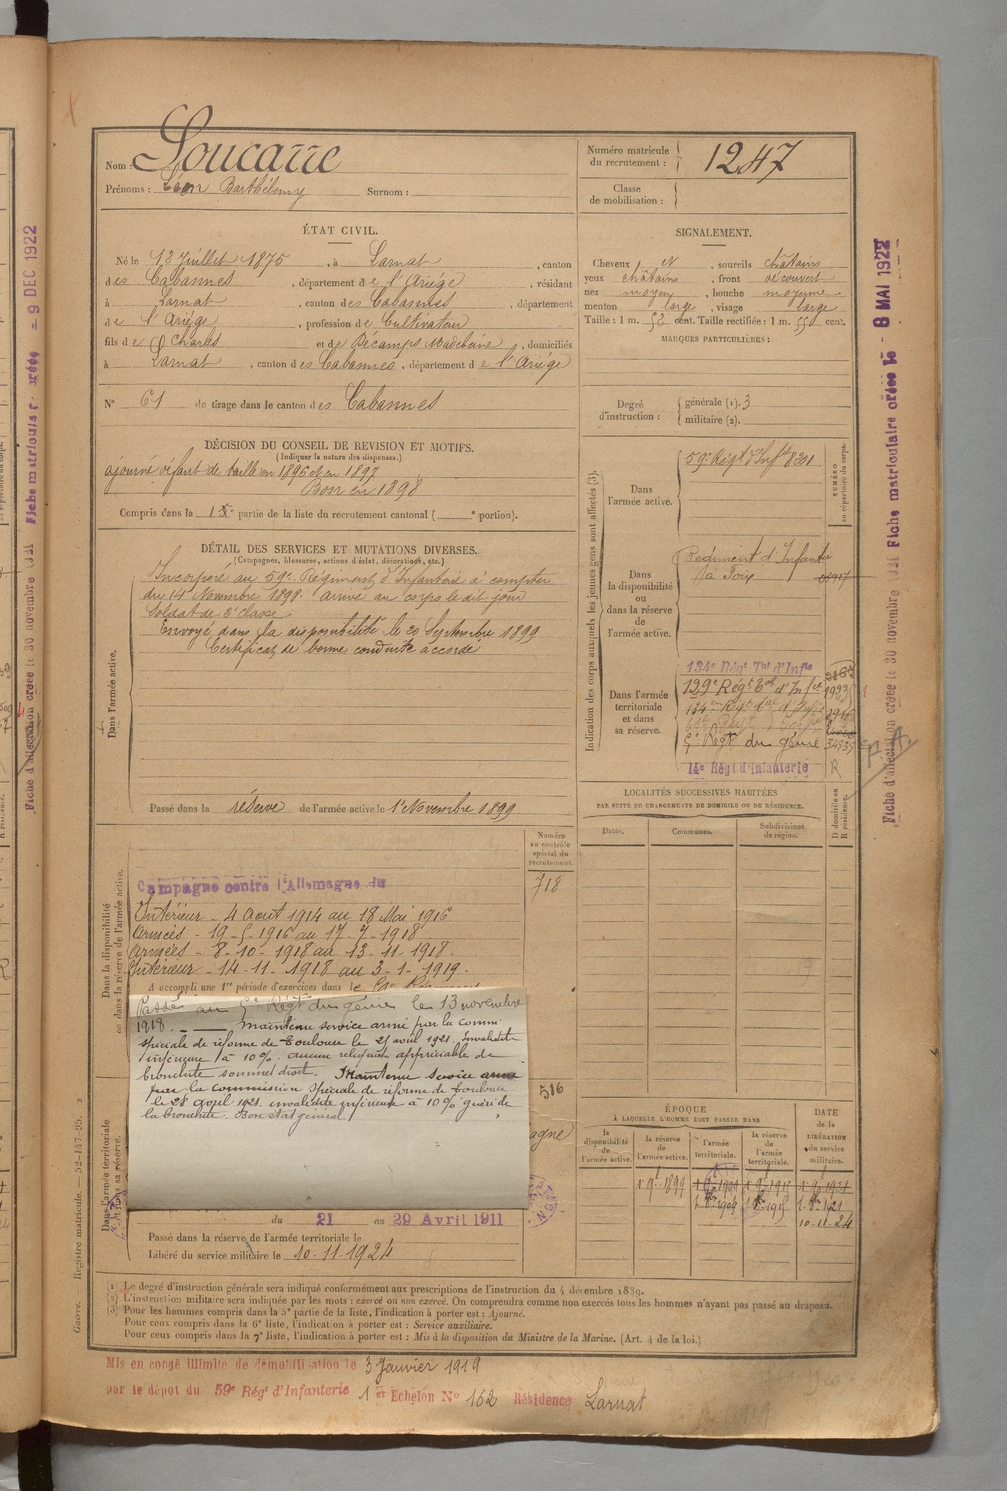 Nom : Soucarre
Prénoms : Léon Barthélemy Surnom :
Numéro matricule du recrutement : 1247
Classe de mobilisation :
ÉTAT CIVIL.
Né le 12 Juillet 1875, à Larnat, canton
des Cabannes, département de l'Ariége, résidant
à Larnat, canton des Cabannes, département
de l'Ariége, profession de Cultivateur
fils de Charles et de Décamps Madeleine, domiciliés
à Larnat, canton des Cabannes, département de l'Ariége
N° 61 de tirage dans le canton des Cabannes
SIGNALEMENT.
Cheveux et, sourcils châtains
yeux châtains, front découvert
nez moyen, bouche moyenne
menton large, visage large
Taille : 1 m. 52 cent. Taille rectifiée : 1 m. 55 cent.
MARQUES PARTICULIÈRES :
Degré d'instruction : générale (1). 3
militaire (2).
DÉCISION DU CONSEIL DE REVISION ET MOTIFS.
(Indiquer la nature des dispenses.)
ajourné défaut de taille en 1896 et en 1897
Bon en 1898
Compris dans la partie de la liste du recrutement cantonal ( portion).
DÉTAIL DES SERVICES ET MUTATIONS DIVERSES.
(Campagnes, blessures, actions d'éclat, décorations, etc.)
Dans l'armée active.
Incorporé au 59e Régiment d'Infanterie à compter
du 14 Novembre 1898. arrivé au corps le dit jour
Soldat de 2e classe
Envoyé dans la disponibilité le 20 Septembre 1899
Certificat de bonne conduite accordé
Passé dans la réserve de l'armée active le 1er Novembre 1899
Indication des corps auxquels les jeunes gens sont affectés (3).
NUMÉRO au répertoire du corps.
Dans l'armée active. 59e Régt d'Infie 8201
Dans la disponibilité ou dans la réserve de l'armée active.
Régiment d'Infanterie
Dans l'armée territoriale et dans sa réserve.
134e Régt Tal d'Infie
129e Régt Tal d'Infie
134e Régt Tal d'Infie
Régt du génie
14e Régt d'Infanterie R
LOCALITÉS SUCCESSIVES HABITÉES
PAR SUITE DE CHANGEMENTS DE DOMICILE OU DE RÉSIDENCE.
D domicile ou R résidence.
Dates. Communes. Subdivisions de région.
Numéro au contrôle spécial du recrutement.
718
Dans la disponibilité ou dans la réserve de l'armée active.
Campagne contre l'Allemagne du
Intérieur - 4 Août 1914 au 18 Mai 1916
Armées - 19-5-1916 au 17-7-1918
Armées - 8-10-1918 au 13-11-1918.
Intérieur - 14-11-1918 au 3-1-1919.
A accompli une 1re période d'exercices dans le
Passé au Régt du génie le 13 novembre
1918. maintenu service armé par la Comm
spéciale de réforme de Toulouse le 28 avril 1921. invalidité
inférieure à 10%. aucun reliquat appréciable de
bronchite sommet droit. Maintenu service armé
par la commission spéciale de réforme de Toulouse
le 28 avril 1921. invalidité inférieure à 10% guéri de
la bronchite. Bon état général.
516
agne
Dans l'armée territoriale sa réserve.
du 21 au 29 Avril 1911
Passé dans la réserve de l'armée territoriale le
Libéré du service militaire le 10-11-1924
ÉPOQUE
À LAQUELLE L'HOMME DOIT PASSER DANS
la disponibilité de l'armée active.
la réserve de l'armée active.
l'armée territoriale.
la réserve de l'armée territoriale.
DATE de la LIBÉRATION du service militaire.
10-11-24
(1) Le degré d'instruction générale sera indiqué conformément aux prescriptions de l'instruction du 4 décembre 1889.
(2) L'instruction militaire sera indiquée par les mots : exercé ou non exercé. On comprendra comme non exercés tous les hommes n'ayant pas passé au drapeau.
(3) Pour les hommes compris dans la 5e partie de la liste, l'indication à porter est : Ajourné.
Pour ceux compris dans la 6e liste, l'indication à porter est : Service auxiliaire.
Pour ceux compris dans la 7e liste, l'indication à porter est : Mis à la disposition du Ministre de la Marine. (Art. 4 de la loi.)
Mis en congé illimité de démobilisation le 3 Janvier 1919
par le dépôt du 59e Régt d'Infanterie 1er Echelon N° 162 Résidence Larnat
Guerre. Registre matricule. — 52-147-95.
Fiche d'affectation créée le 30 novembre 1921 Fiche matriculaire créée le - 8 MAI 1922
Fiche d'affectation créée le 30 novembre 1921 Fiche matricule créée - 9 DEC 1922